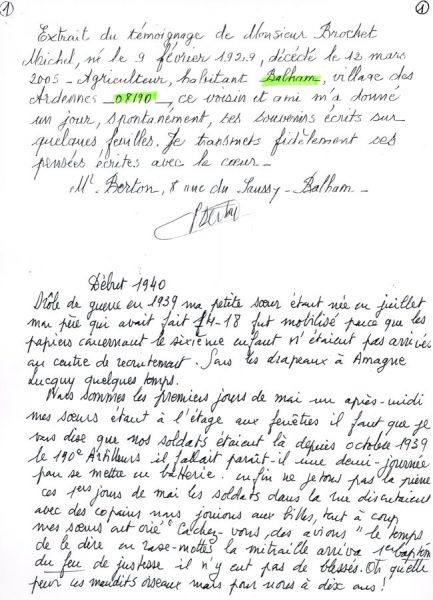 ① ①
Extrait du témoignage de Monsieur Brochet
Michel, né le 9 février 1929, décédé le 12 mars
2005 - Agriculteur, habitant Balham, village des
Ardennes 08190, ce voisin et ami m'a donné
un jour, spontanément, ses souvenirs écrits sur
quelques feuilles. Je transmets fidèlement ses
pensées écrites avec le coeur -
Mr Berton, 8 rue du Saussy - Balham -
Début 1940
Drôle de guerre en 1939 ma petite soeur étant née en juillet
mon père qui avait fait 14-18 fut mobilisé parce que les
papiers concernant le sixième enfant n'étaient pas arrivés
au centre de recrutement. Sous les drapeaux à Amagne
Lucquy quelques temps.
Nous sommes les premiers jours de mai un après-midi
mes soeurs étant à l'étage aux fenêtres il faut que je
vous dise que nos soldats étaient là depuis octobre 1939
le 190e Artilleurs il fallait paraît-il une demi-journée
pour se mettre en batterie. enfin ne jetons pas la pierre
ces 1ers jours de mai les soldats dans la rue discutaient
avec des copains nous jouions aux billes, tout à coup
mes soeurs ont crié "Cachez-vous, des avions" le temps
de le dire en rase-mottes la mitraille arriva 1er baptême
du feu de justesse il n'y eut pas de blessés. Oh quelle
peur ces maudits oiseaux mais pour nous à dix ans !